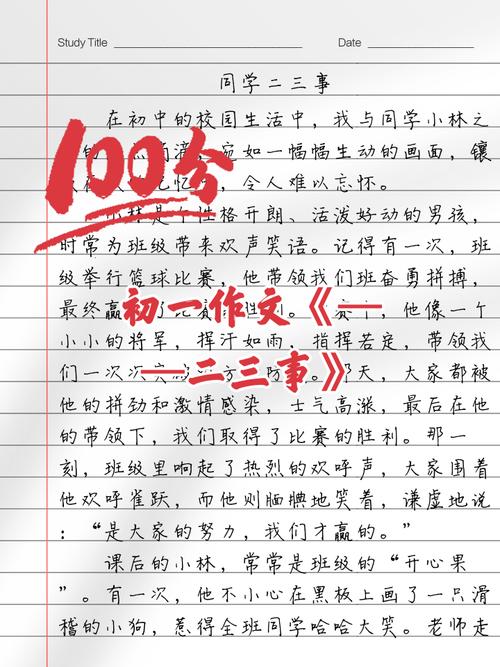 Study Title
Date
同学二三事
在初中的校园生活中，我与同学小林之
的点点滴滴，宛如一幅幅生动的画面，镶
记忆，令人难以忘怀。
100分
小林是个性格开朗、活泼好动的男孩，
时常为班级带来欢声笑语。记得有一次，班
级举行篮球比赛，他带领我们班奋勇拼搏，
最终赢了比赛，他像一个
初一作文《——
小小的将军，挥汗如雨，指挥若定，带领我
们一次次防天，大家都被
——二三事》
他的拼劲和激情感染，士气高涨，最后在他
的带领下，我们取得了比赛的胜利。那一
刻，班级里响起了热烈的欢呼声，大家围着
他欢呼雀跃，而他则腼腆地笑着，谦虚地说
：“是大家的努力，我们才赢的。”
课后的小林，常常是班级的“开心果
”。有一次，他不小心在黑板上画了一只滑
稽的小狗，惹得全班同学哈哈大笑。老师走